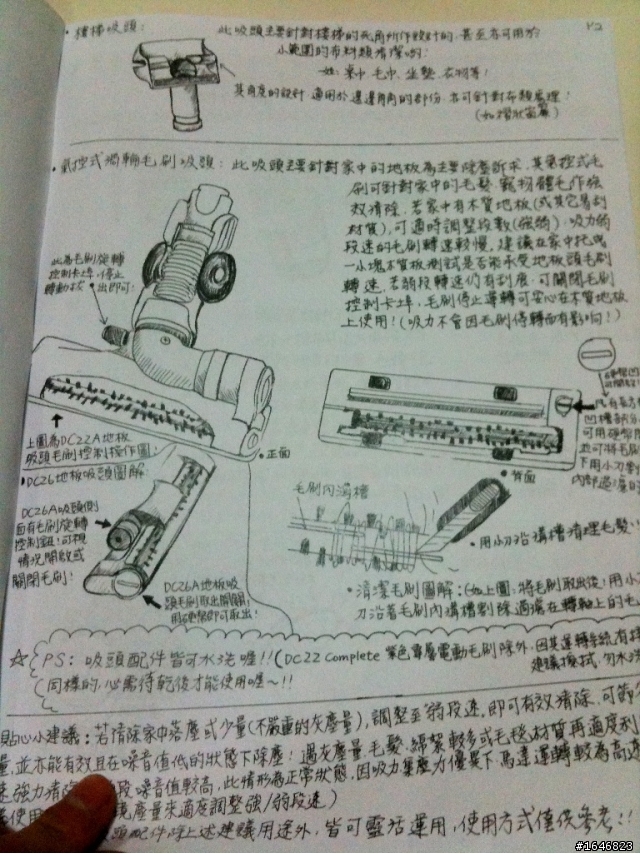 P2
•樓梯吸頭: 此吸頭主要針對樓梯的死角所作設計的,甚至亦可用於
小範圍的布料類清潔喲!
如:桌巾、毛巾、坐墊、衣物等!
其角度的設計,適用於邊邊角角的部份,亦可針對布類處理!
(如摺狀窗簾)
•氣控式渦輪毛刷吸頭: 此吸頭主要針對家中的地板為主要除塵訴求,其氣控式毛
刷可針對家中的毛髮、寵物體毛作強
效清除,若家中有木質地板(或其它易刮
材質),可適時調整段數(強弱):吸力弱
段速的毛刷轉速較慢,建議在家中找塊
一小塊木質板測試是否能承受地板頭毛刷
轉速,若弱段轉速仍有刮痕,可關閉毛刷
控制卡榫,毛刷停止運轉可安心在木質地板
上使用!(吸力不會因毛刷停轉而有影響!)
此為毛刷旋轉
控制卡榫,停止
轉動按
出即可!
上圖為DC22A地板
吸頭毛刷控制操作圖!
•正面
•背面
•DC26地板吸頭圖解:
DC26A吸頭側
面有毛刷旋轉
控制鈕!可視
情況開啟或
關閉毛刷!
DC26A地板吸
頭毛刷取出開關,
用硬幣即可取出!
凹槽部分
可用硬幣
並可將毛刷
下用小刀
毛刷內溝槽
•用小刀沿溝槽清理毛髮
•清潔毛刷圖解:(如上圖,將毛刷取出後,用小
刀沿著毛刷內溝槽割除過濾在轉軸上的毛
☆ PS: 吸頭配件皆可水洗喔!!(DC22 Complete 紫色單層電動毛刷除外,因其運轉系統有
建議擦拭,勿水洗
(同樣的,必需待乾後才能使用喔~!!
貼心小建議: 若清除家中落塵或少量(不嚴重的灰塵量),調整至弱段速,即可有效清除,可節
量,並亦能有效且在噪音值低的狀態下除塵!遇灰塵量、毛髮、綿絮較多或毛毯材質再適度利
速強力清
段噪音值較高,此情形為正常狀態,因吸力集塵力優異下,馬達運轉較為高速
議使用
塵量來適度調整強/弱段速)
頭配件除上述建議用途外,皆可靈活運用,使用方式僅供參考!!
#1646823